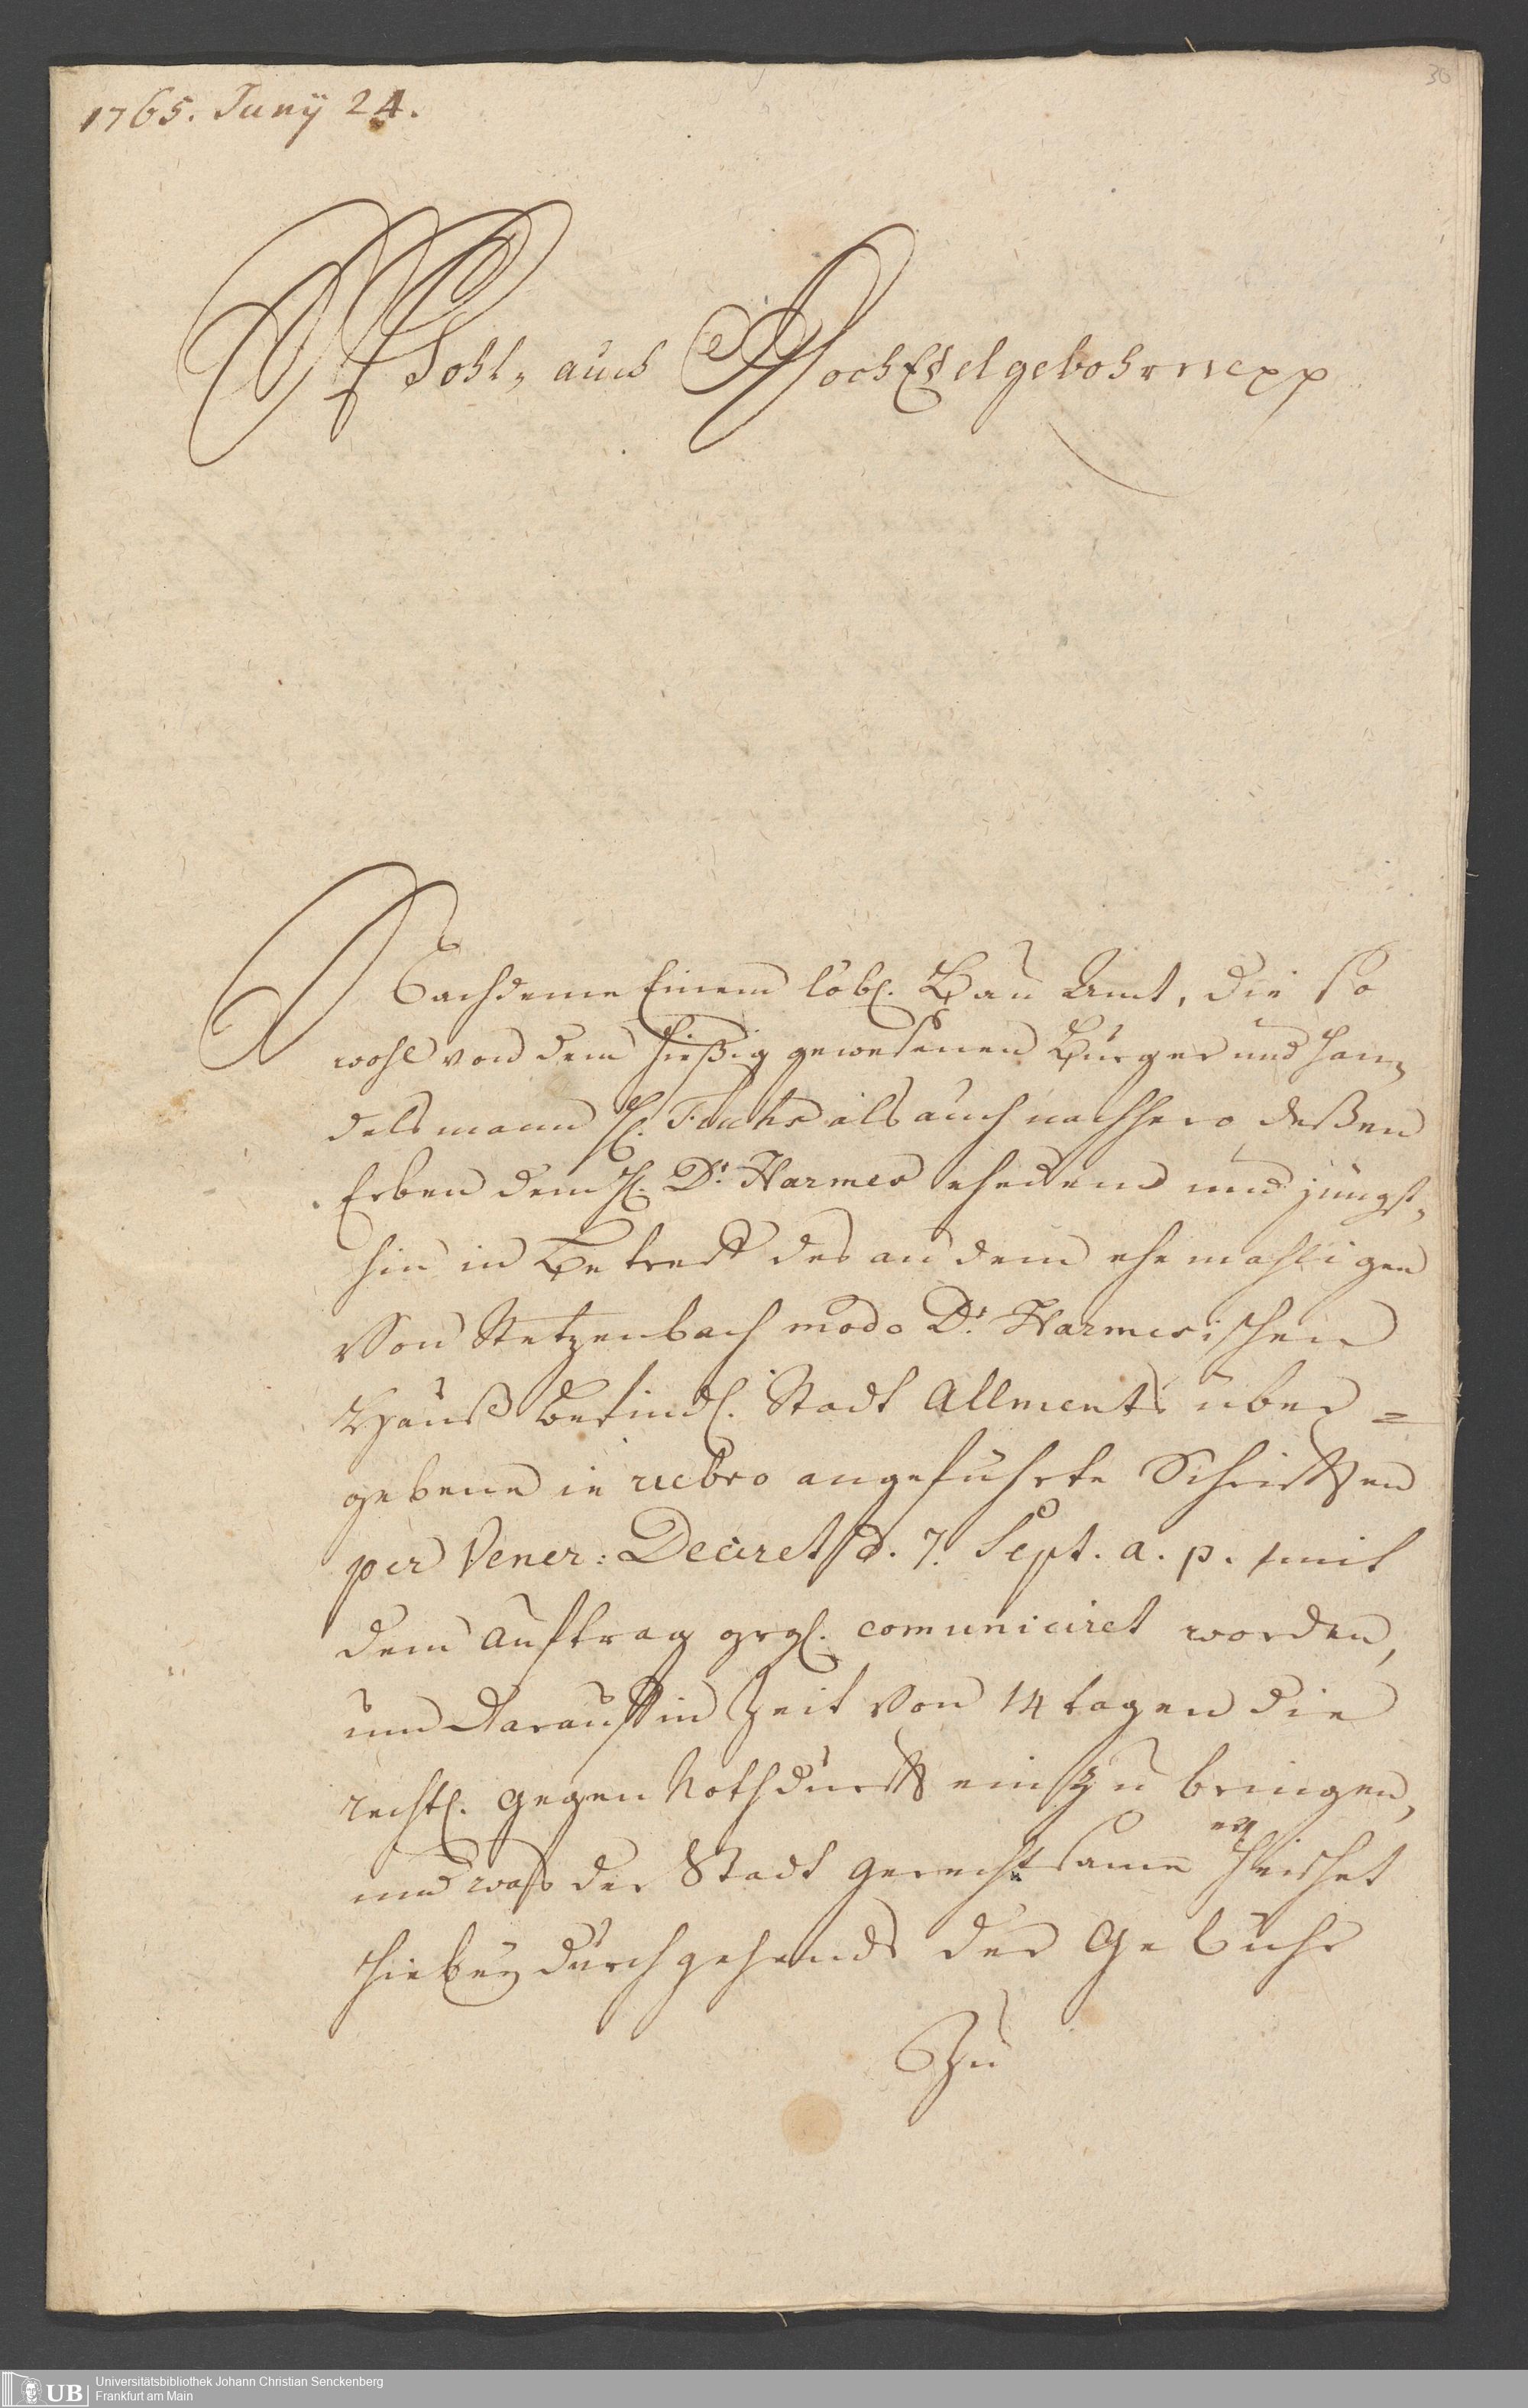 30
1765. Juny 24.
Wohl, auch HochEdelgebohrne pp
Nachdeme Einem löbl. Bau Amt, die so
wohl von dem hießig gewesenen Burger und Han,
delsmann H. Fuchs als auch nachhero deßen
Erben dem H. Dr. Harmes ehedem und jüngst,
hin in Betreff des an dem ehemahligen
Von Stetzenbach modo Dr. Harmesischen
Hauß befindl. Stadt Allments über=
gebene in rubro angeführte Schrifften
per Vener: Decret d. 7. Sept. a. p. mit
dem Auftrag grgl. comuniciret worden,
um darauff in Zeit von 14 tagen die
rechtl. gegen Nothdurfft einzubringen,
und was der Stadt gerechtsame erheischet
hiebey durchgehends der Gebühr
Zu
UB
Universitätsbibliothek Johann Christian Senckenberg
Frankfurt am Main